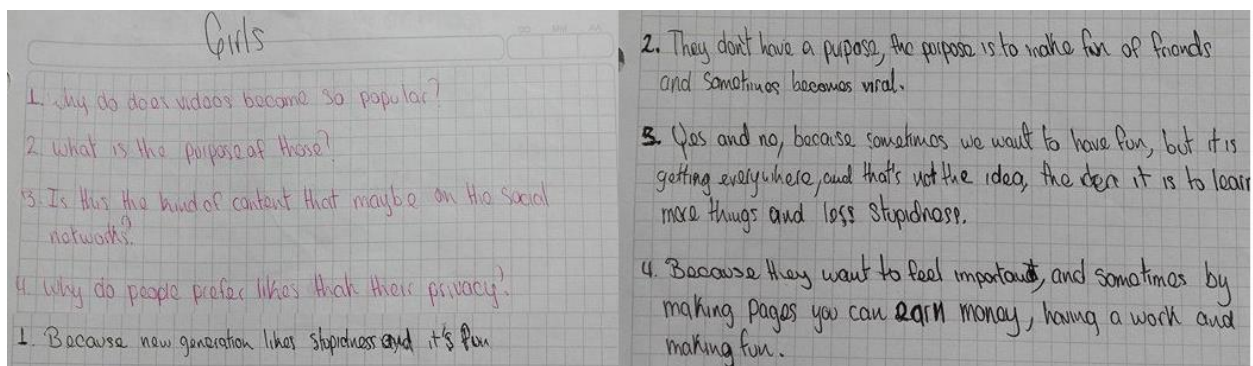 Girls
1. Why do does videos become so popular?
2. What is the porpose of those?
3. Is this the kind of content that maybe on the social
networks?
4. Why do people prefer likes than their privacy?
1. Because new generation likes stupidness and it's fun
2. They don't have a pupose, the porpose is to make fun of friends
and sometimes becomes viral.
3. Yes and no, because sometimes we want to have fun, but it is
getting everywhere, and that's not the idea, the it is to learn
more things and less stupidnese.
4. Because they want to feel important, and sometimes by
making pages you can earn money, having a work and
making fun.